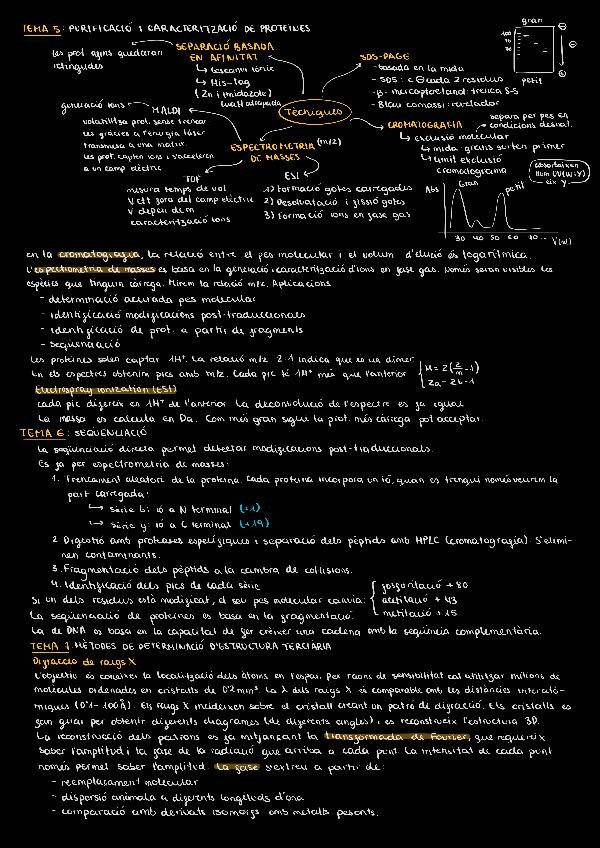 TEMA 5: PURIFICACIÓ I CARACTERITZACIÓ DE PROTEÏNES
SEPARACIÓ BASADA
EN AFINITAT
les prot afins quedaran
retingudes
↳ Bescanvi iònic
↳ His-tag
(Zn i imidazole)
Tècniques
SDS-PAGE
- basada en la mida
- SDS: c⊖ cada 2 residus
- β-mercaptoetanol: trenca S-S
- Blau comassi: revelador
gran
petit
CROMATOGRAFIA
separa per pes en
condicions desnat.
↳ exclusió molecular
↳ mida: grans surten primer
↳ límit exclusió
cromatograma
absorbeixen
llum UV (W i Y)
eix Y
Abs
Gran
petit
30 40 50 60 70...
V(ml)
ESPECTROMETRIA (m/z)
DE MASSES
MALDI
generació ions
volatilitza prot. sense trencar
les gràcies a l'energia làser
transmesa a una matriu.
les prot capten ions i s'acceleren
a un camp elèctric
TOF
mesura temps de vol
V elt fora del camp elèctric
V depèn de m
caracterització ions
ESI
1) Formació gotes carregades
2) Desolvatació i fissió gotes
3) Formació ions en fase gas
en la cromatografia, la relació entre el pes molecular i el volum d'elució és logarítmica.
L'espectrometria de masses es basa en la generació i caracterització d'ions en fase gas. Només seran visibles les
espècies que tinguin càrrega. Mirem la relació m/z. Aplicacions
- determinació acurada pes molecular
- identificació modificacions post-traduccionals
- identificació de prot. a partir de fragments
- seqüenciació
Les proteïnes solen captar 1H⁺. La relació m/z 2:1 indica que és un dímer
En els espectres obtenim pics amb m/z. Cada pic té 1H⁺ més que l'anterior
M = Z(Z/m - 1)
Za = Zb - 1
Electrospray ionization (ESI)
cada pic difereix en 1H⁺ de l'anterior. La deconvolució de l'espectre es fa igual
La massa es calcula en Da. Com més gran sigui la prot. més càrrega pot acceptar.
TEMA 6: SEQÜENCIACIÓ
La seqüenciació directa permet detectar modificacions post-traduccionals.
Es fa per espectrometria de masses:
1. Trencament aleatori de la proteïna. Cada proteïna incorpora un ió, quan es trenqui només veurem la
part carregada:
↳ sèrie b: ió a N terminal (+1)
↳ sèrie y: ió a C terminal (+19)
2. Digestió amb proteases específiques i separació dels pèptids amb HPLC (cromatografia). S'elimi-
nen contaminants.
3. Fragmentació dels pèptids a la cambra de col·lisions.
4. Identificació dels pics de cada sèrie
Si un dels residus està modificat, el seu pes molecular canvia:
fosforilació + 80
acetilació + 43
metilació + 15
La seqüenciació de proteïnes es basa en la fragmentació.
La de DNA es basa en la capacitat de fer créixer una cadena amb la seqüència complementària.
TEMA 7. MÈTODES DE DETERMINACIÓ D'ESTRUCTURA TERCIÀRIA
Difracció de raigs X
L'objectiu és conèixer la localització dels àtoms en l'espai. Per raons de sensibilitat cal utilitzar milions de
molècules ordenades en cristalls de 0'2mm³. La λ dels raigs X és comparable amb les distàncies interatò-
miques (0'1-100Å). Els raigs X incideixen sobre el cristall creant un patró de difracció. Els cristalls es
fan girar per obtenir diferents diagrames (de diferents angles) i es reconstrueix l'estructura 3D.
La reconstrucció dels patrons es fa mitjançant la transformada de Fourier, que requereix
saber l'amplitud i la fase de la radiació que arriba a cada punt. La intensitat de cada punt
només permet saber l'amplitud. La fase s'extreu a partir de:
- reemplaçament molecular
- dispersió anòmala a diferents longituds d'ona
- comparació amb derivats isomorfs amb metalls pesants.